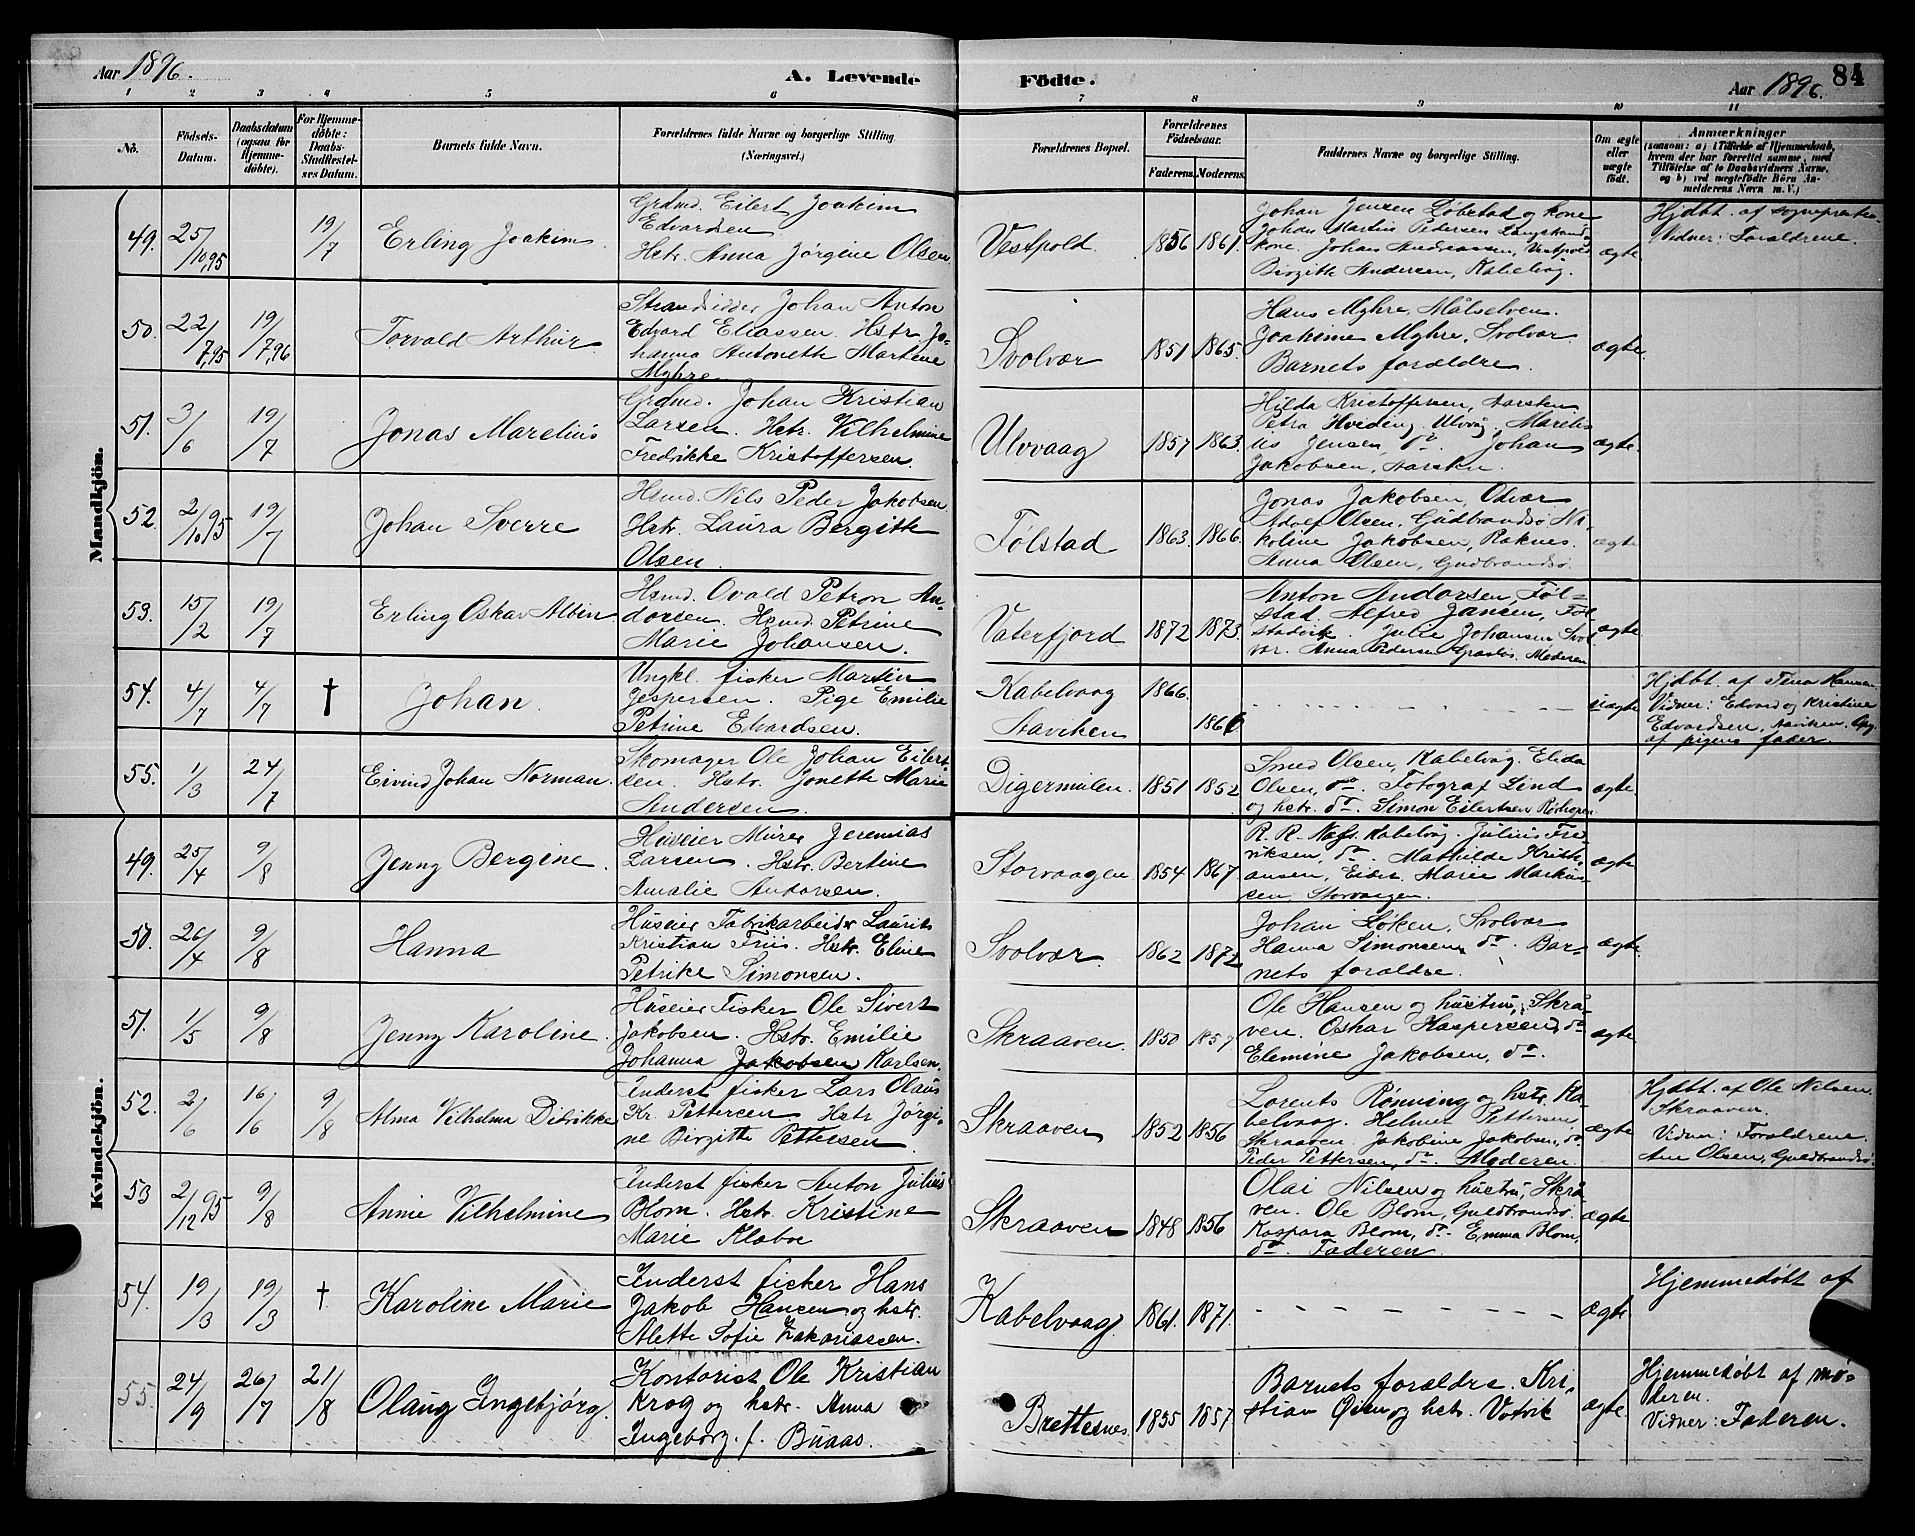 Aar 1896.
A. Levende
Fødte.
Aar 1896.
84
1 2 3 4 5 6 7 8 9 10 11
No.
Fødsels-
Datum.
Daabsdatum
(ogsaa for
Hjemme-
døbte).
For Hjemme-
døbte:
Daabs-
Stadfæstel-
ses Datum.
Barnets fulde Navn.
Forældrenes fulde Navne og borgerlige Stilling
(Næringsvei.)
Forældrenes Bopæl.
Forældrenes
Fødselsaar.
Faderens. Moderens.
Faddernes Navne og borgerlige Stilling.
Om ægte
eller
uægte
født.
Anmærkninger
(saasom: a) i Tilfælde af Hjemmedaab,
hvem der har forrettet samme, med
Tilføielse af to Daabsvidners Navne,
og b) ved uægtefødte Børn An-
melderens Navn m. V.)
Mandkjön.
49. 25/10,95 19/7 Erling Joakim.
Grdmd. Eilert Joakim
Edvardsen
Hstr. Anna Jörgine Olsen.
Vestpold. 1856 1861.
Johan Jensen Löbstad og kone
Johan Martin Pedersen Langstrand og
kone. Johan Andreassen, Vestpold
Birgitte Andersen, Kabelvåg.
ægte
Hjdbt. af sognepresten
Vidner: Forældrene.
50. 22/7,95 19/7,96 Torvald Arthur.
Strandsidder Johan Anton
Edvard Eliassen. Hstr. Jo-
hanna Antonette Martine
Myhre
Svolvær 1851 1865.
Hans Myhre, Målselven.
Joakime Myhre, Svolvær
Barnets forældre.
ægte
51. 3/6 19/7 Jonas Marelius
Grdmd. Johan Kristian
Larsen. Hstr. Vilhelmine
Fredrikke Kristoffersen.
Ulvvaag 1857 1863.
Hilda Kristoffersen, Aarsten
Petra Hveding, Ulvåg. Mareli-
us Jensen, do. Johan
Jakobsen, Aarsten.
ægte.
52. 2/10 95 19/7 Johan Sverre
Hsmd. Nils Peder Jakobsen
Hstr. Laura Bergitte
Olsen.
Fölstad 1863. 1866.
Jonas Jakobsen, Odvær
Adolf Olsen, Gudbrandsö Ni-
koline Jakobsen, Raknes.
Anna Olsen, Gudbrandsö.
ægte
53. 15/2 19/7 Erling Oskar Albin
Hsmd. Ovald Petron An-
dorsen. Hsmd. Petrine
Marie Johansen.
Vaterfjord 1872 1873.
Anton Andorsen, Föl-
stad. Alfred Jansen, Föl-
stadvik. Julie Johansen Svol-
vær. Anna Pedersen Moderen
ægte
54. 4/7 4/7 † Johan.
Ungkl. fisker Martin
Jespersen. Pige Emilie
Petrine Edvardsen.
Kabelvaag 1866.
Aaviken
uægte
Hjdbt. af Tina Hansen
Vidner: Edvard og Kristine
Edvardsen, Aaviken. Opg.
af pigens fader.
55. 1/3 24/7 Eivind Johan Norman.
Skomager Ole Johan Eilert-
sen. Hstr. Jonette Marie
Andersen
Digermulen. 1851 1852
Smed Olsen, Kabelvåg. Elida
Olsen, do. Fotograf Lind
og hstr. do. Simon Eilertsen
ægte
Kvindekjön.
49. 25/4 9/8 Jenny Bergine.
Huseier Murer Jeremias
Larsen. Hstr. Bertine
Amalie Andorsen.
Storvaagen 1854 1867
R. R. Kabelvåg. Julius Fre-
riksen, do. Mathilde Kristi-
ansen, Eidet. Marie Markus-
sen, Storvaagen.
ægte
50. 26/4 9/8 Hanna
Huseier Fabrikarbeider Laurits
Kristian Friis. Hstr. Eline
Petrike Simonsen.
Svolvær. 1862 1872
Johan Löken, Svolvær
Hanna Simonsen, do. Bar-
nets forældre.
ægte
51. 1/5 9/8 Jenny Karoline.
Huseier Fisker Ole Sivert
Jakobsen. Hstr. Emilie
Johanna Jakobsen Karlsen.
Skraaven. 1850 1857
Ole Hansen og hustru, Skrå-
ven. Oskar Haspersen, do
Elemine Jakobsen, do.
ægte
52. 2/6 16/6 9/8 Alma Vilhelma Didrikke
Inderst fisker Lars Olaus
Kr. Pettersen Hstr. Jörgi-
ne Birgitte Pettersen
Skraaven 1852 1856
Lorents Rönning og hstr. Ka-
belvaag. Helmer Pettersen,
Skraaven. Jakobine Jakobsen, do
Peder Pettersen, do. Moderen.
ægte
Hjdbt. af Ole Nilsen
Skraaven.
Vidner: Forældrene.
Ane Olsen, Guldbrandsö.
53 2/12 95 9/8 Annie Vilhelmine
Inderst fisker Anton Julius
Blom. Hstr. Kristine
Marie Klæboe
Skraaven 1848 1856
Olai Nilsen og hustru, Skrå-
ven. Ole Blom, Guldbrandsö.
Kaspara Blom, do. Emma Blom,
do. Faderen.
ægte
54. 19/3 19/3 † Karoline Marie
Inderst fisker Hans
Jakob Hansen og hstr.
Alette Sofie Zakariassen.
Kabelvaag 1861. 1871.
ægte
Hjemmedöbt af
55. 24/9 26/7 21/8 Olaug Ingebjörg.
Kontorist Ole Kristian
Krog og hstr. Anna
Ingeborg f. Buaas.
Brettesnes 1855 1857
Barnets forældre. Kri-
stian Öien og hstr. Votvik
ægte.
Hjemmedöbt af mo-
deren.
Vidner: Faderen.